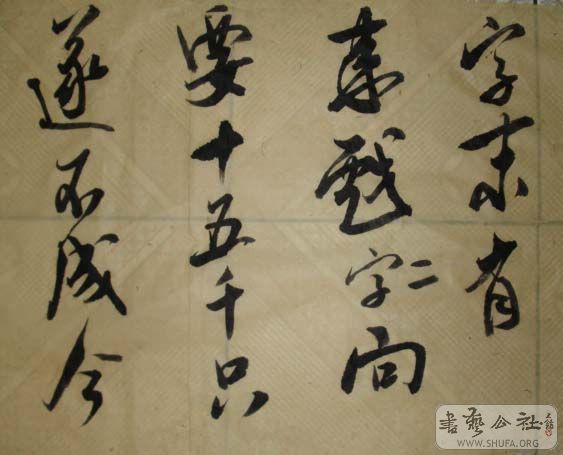 字末有
戲二字向
要十五千只
遂不成今
書藝公社
WWW.SHUFA.ORG